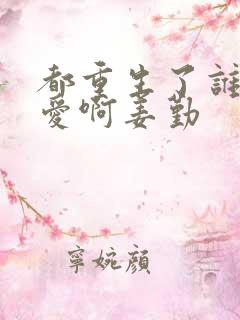 都重生了誰
愛啊姜勤
寧婉顏